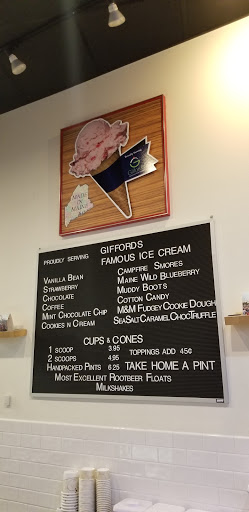 MADE IN MAINE
GIFFORDS
PROUDLY SERVING FAMOUS ICE CREAM
VANILLA BEAN
STRAWBERRY
CHOCOLATE
COFFEE
MINT CHOCOLATE CHIP
COOKIES N CREAM
CAMPFIRE SMORES
MAINE WILD BLUEBERRY
MUDDY BOOTS
COTTON CANDY
M&M FUDGEY COOKIE DOUGH
SEASALTCARAMELCHOCTRUFFLE
CUPS & CONES
1 SCOOP 3.95 TOPPINGS ADD 45¢
2 SCOOPS 4.95
HANDPACKED PINTS 6.25 TAKE HOME A PINT
MOST EXCELLENT ROOTBEER FLOATS
MILKSHAKES